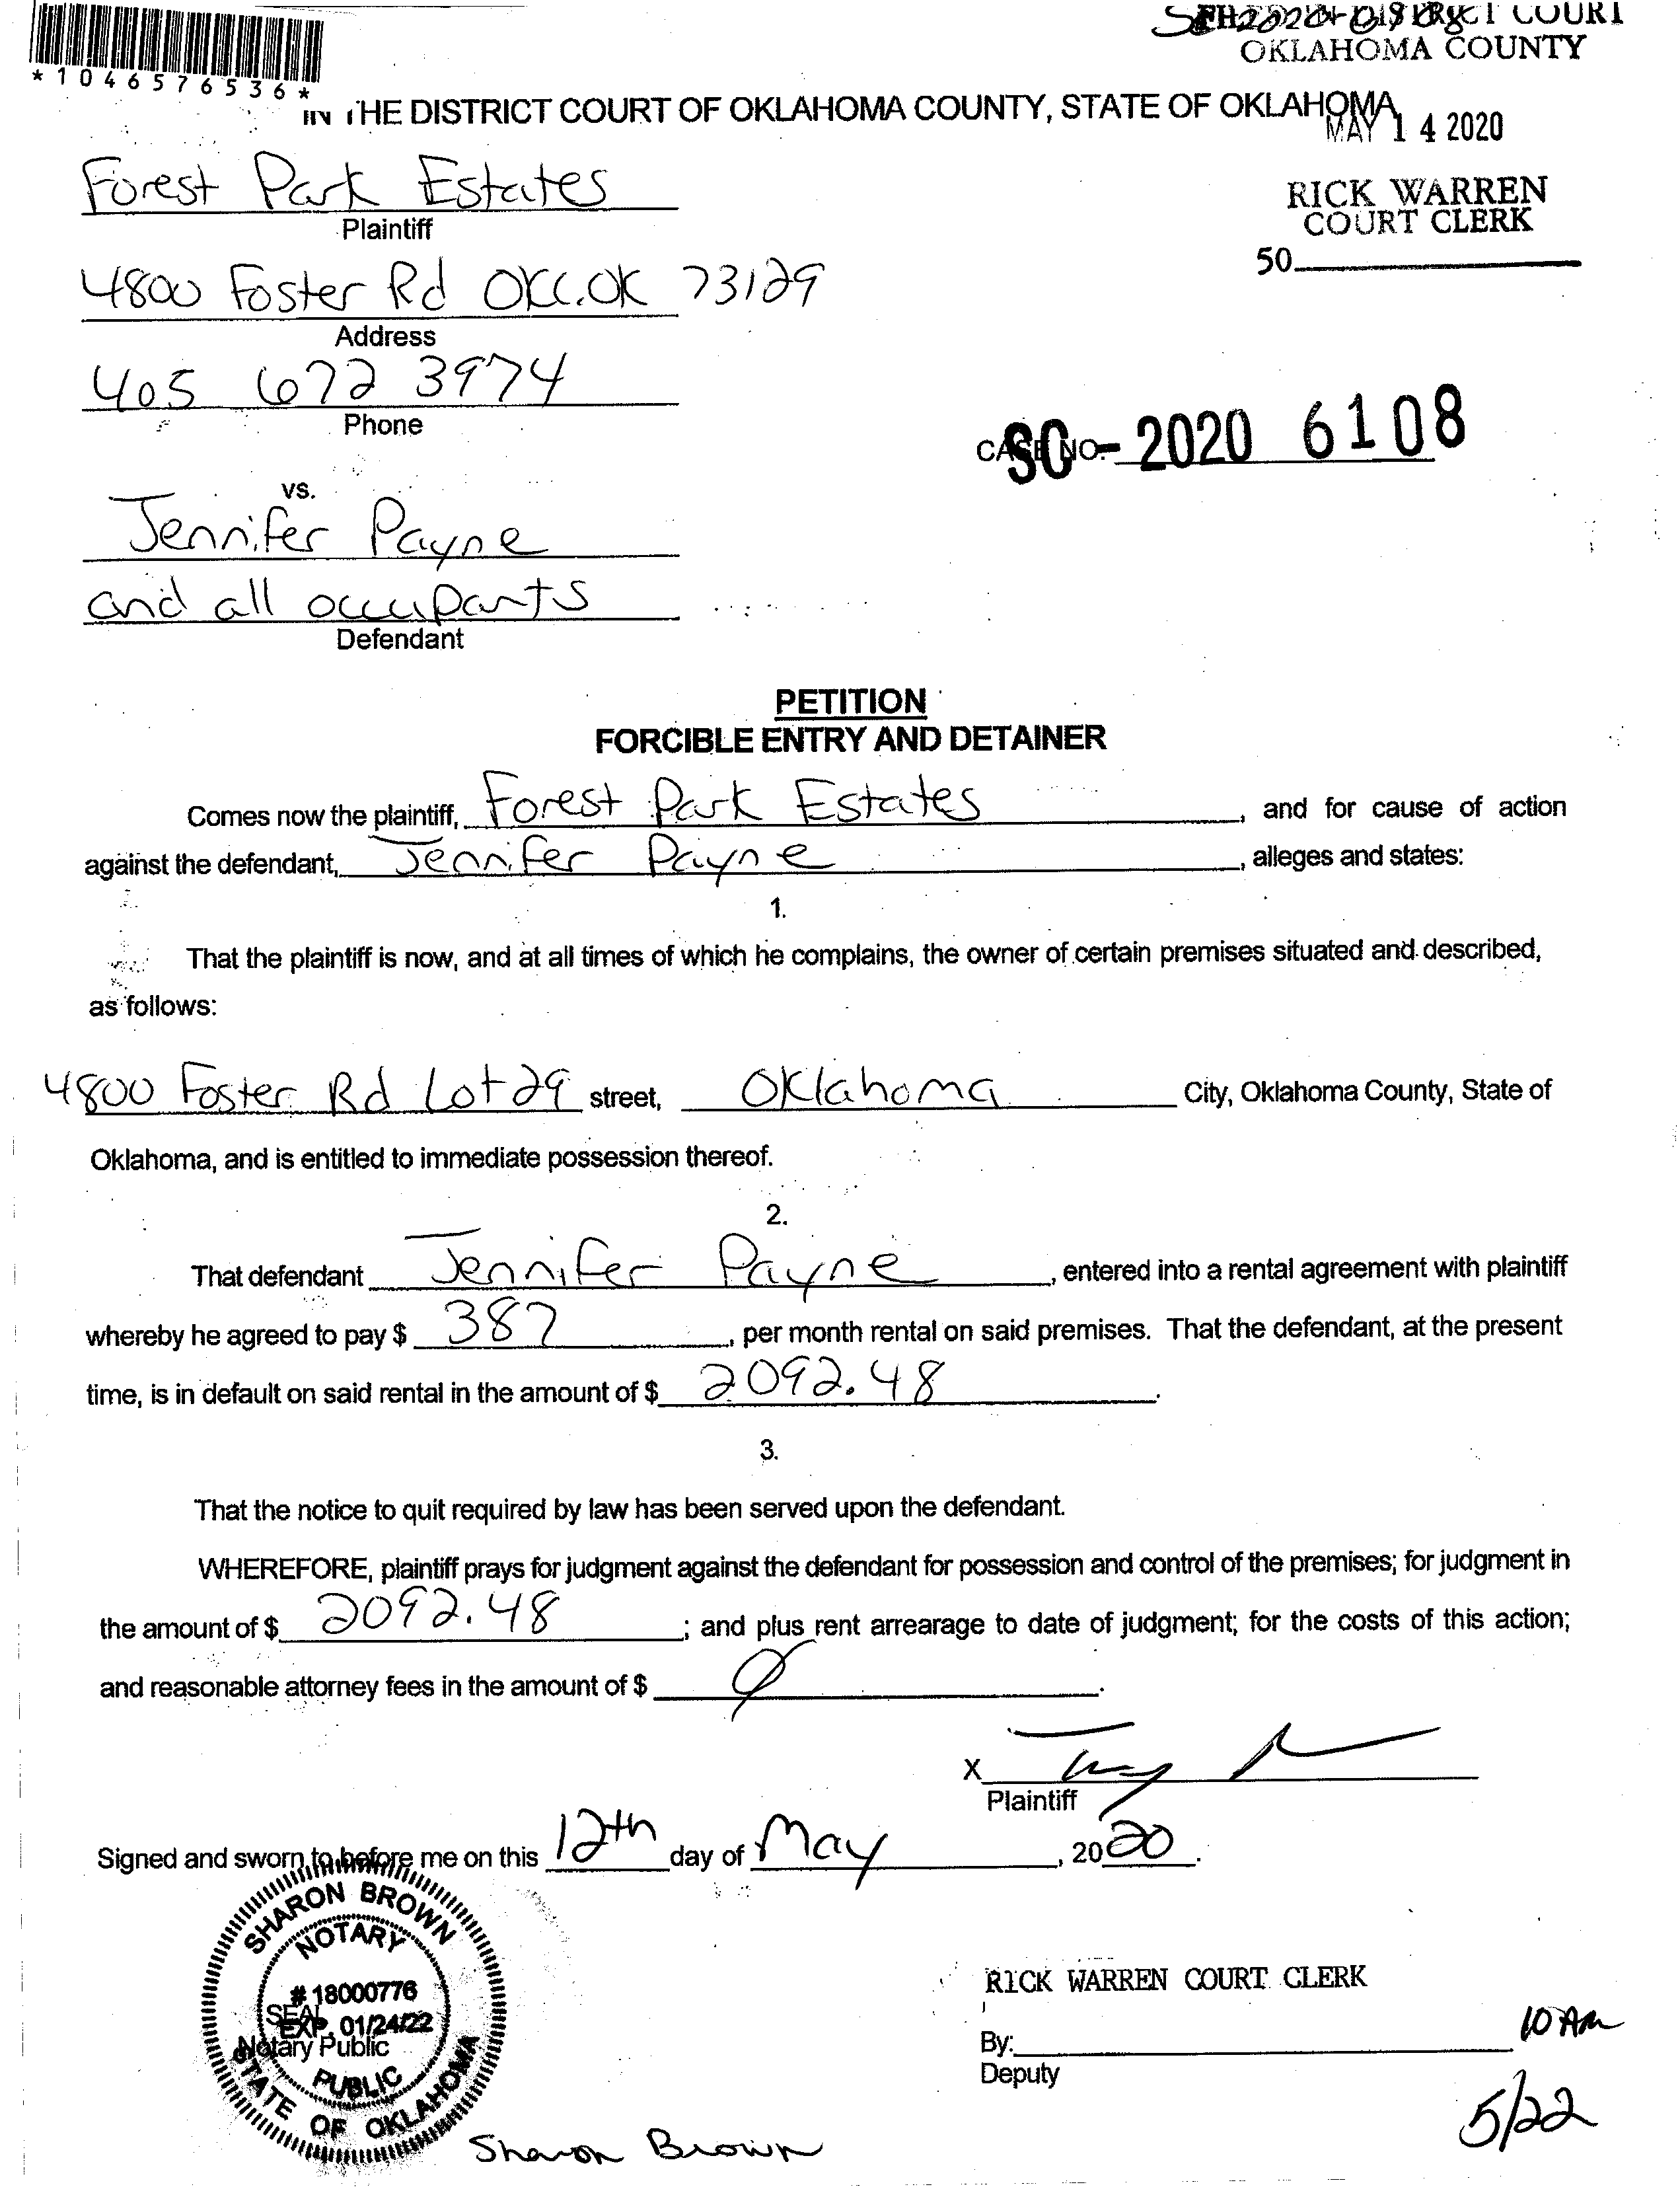 *1046576536*
DISTRICT COURT
OKLAHOMA COUNTY
IN THE DISTRICT COURT OF OKLAHOMA COUNTY, STATE OF OKLAHOMA
MAY 14 2020
Forest Park Estates
Plaintiff
RICK WARREN
COURT CLERK
50
4800 Foster Rd OKC.OK 73129
Address
405 672 3974
Phone
CASE NO. SC-2020 6108
vs.
Jennifer Payne
and all occupants
Defendant
PETITION
FORCIBLE ENTRY AND DETAINER
Comes now the plaintiff, Forest Park Estates, and for cause of action
against the defendant, Jennifer Payne, alleges and states:
1.
That the plaintiff is now, and at all times of which he complains, the owner of certain premises situated and described,
as follows:
4800 Foster Rd Lot 29 street, Oklahoma City, Oklahoma County, State of
Oklahoma, and is entitled to immediate possession thereof.
2.
That defendant Jennifer Payne, entered into a rental agreement with plaintiff
whereby he agreed to pay $ 387, per month rental on said premises. That the defendant, at the present
time, is in default on said rental in the amount of $ 2092.48.
3.
That the notice to quit required by law has been served upon the defendant.
WHEREFORE, plaintiff prays for judgment against the defendant for possession and control of the premises; for judgment in
the amount of $ 2092.48; and plus rent arrearage to date of judgment; for the costs of this action;
and reasonable attorney fees in the amount of $ 0.
X
Plaintiff
Signed and sworn to before me on this 12th day of May, 2020.
SHARON BROWN
NOTARY
# 18000776
SEAL
EXP. 01/24/22
Notary Public
PUBLIC
STATE OF OKLAHOMA
RICK WARREN COURT CLERK
By:
10 AM
Deputy
5/22
Sharon Brown